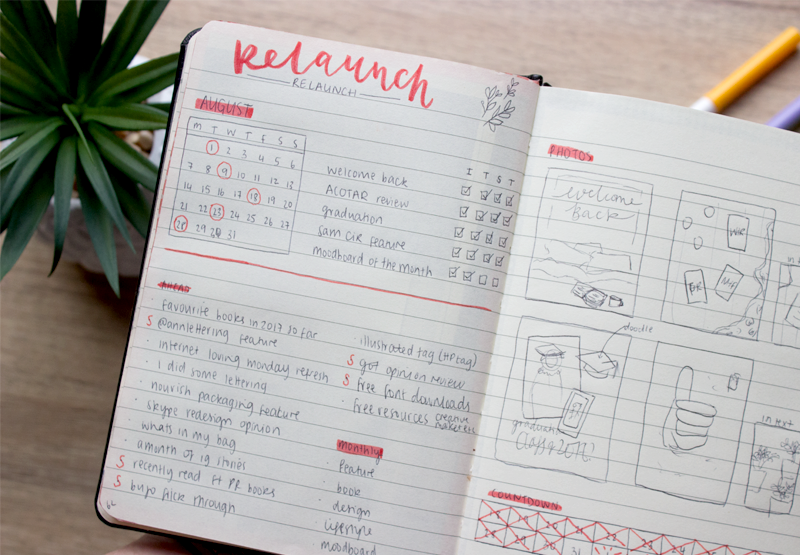 Relaunch
RELAUNCH
AUGUST
M T W T F S S
1 2 3 4 5 6
7 8 9 10 11 12 13
14 15 16 17 18 19 20
21 22 23 24 25 26 27
28 29 30 31
I T S T
welcome back
ACOTAR review
graduation
Sam CIR feature
moodboard of the month
AHEAD
· favourite books in 2017 so far
S @annlettering feature
· internet loving monday refresh
· I did some lettering
· nourish packaging feature
· skype redesign opinion
· whats in my bag
· a month of ig
S recently read ft PR books
S bujo flick through
· illustrated tag (HP tag)
S got opinion review
S free font downloads
· free resources creative
Monthly
· feature
· book
· design
· lifestyle
· moodboard
PHOTOS
welcome
back
doodle
graduation
in text
COUNTDOWN